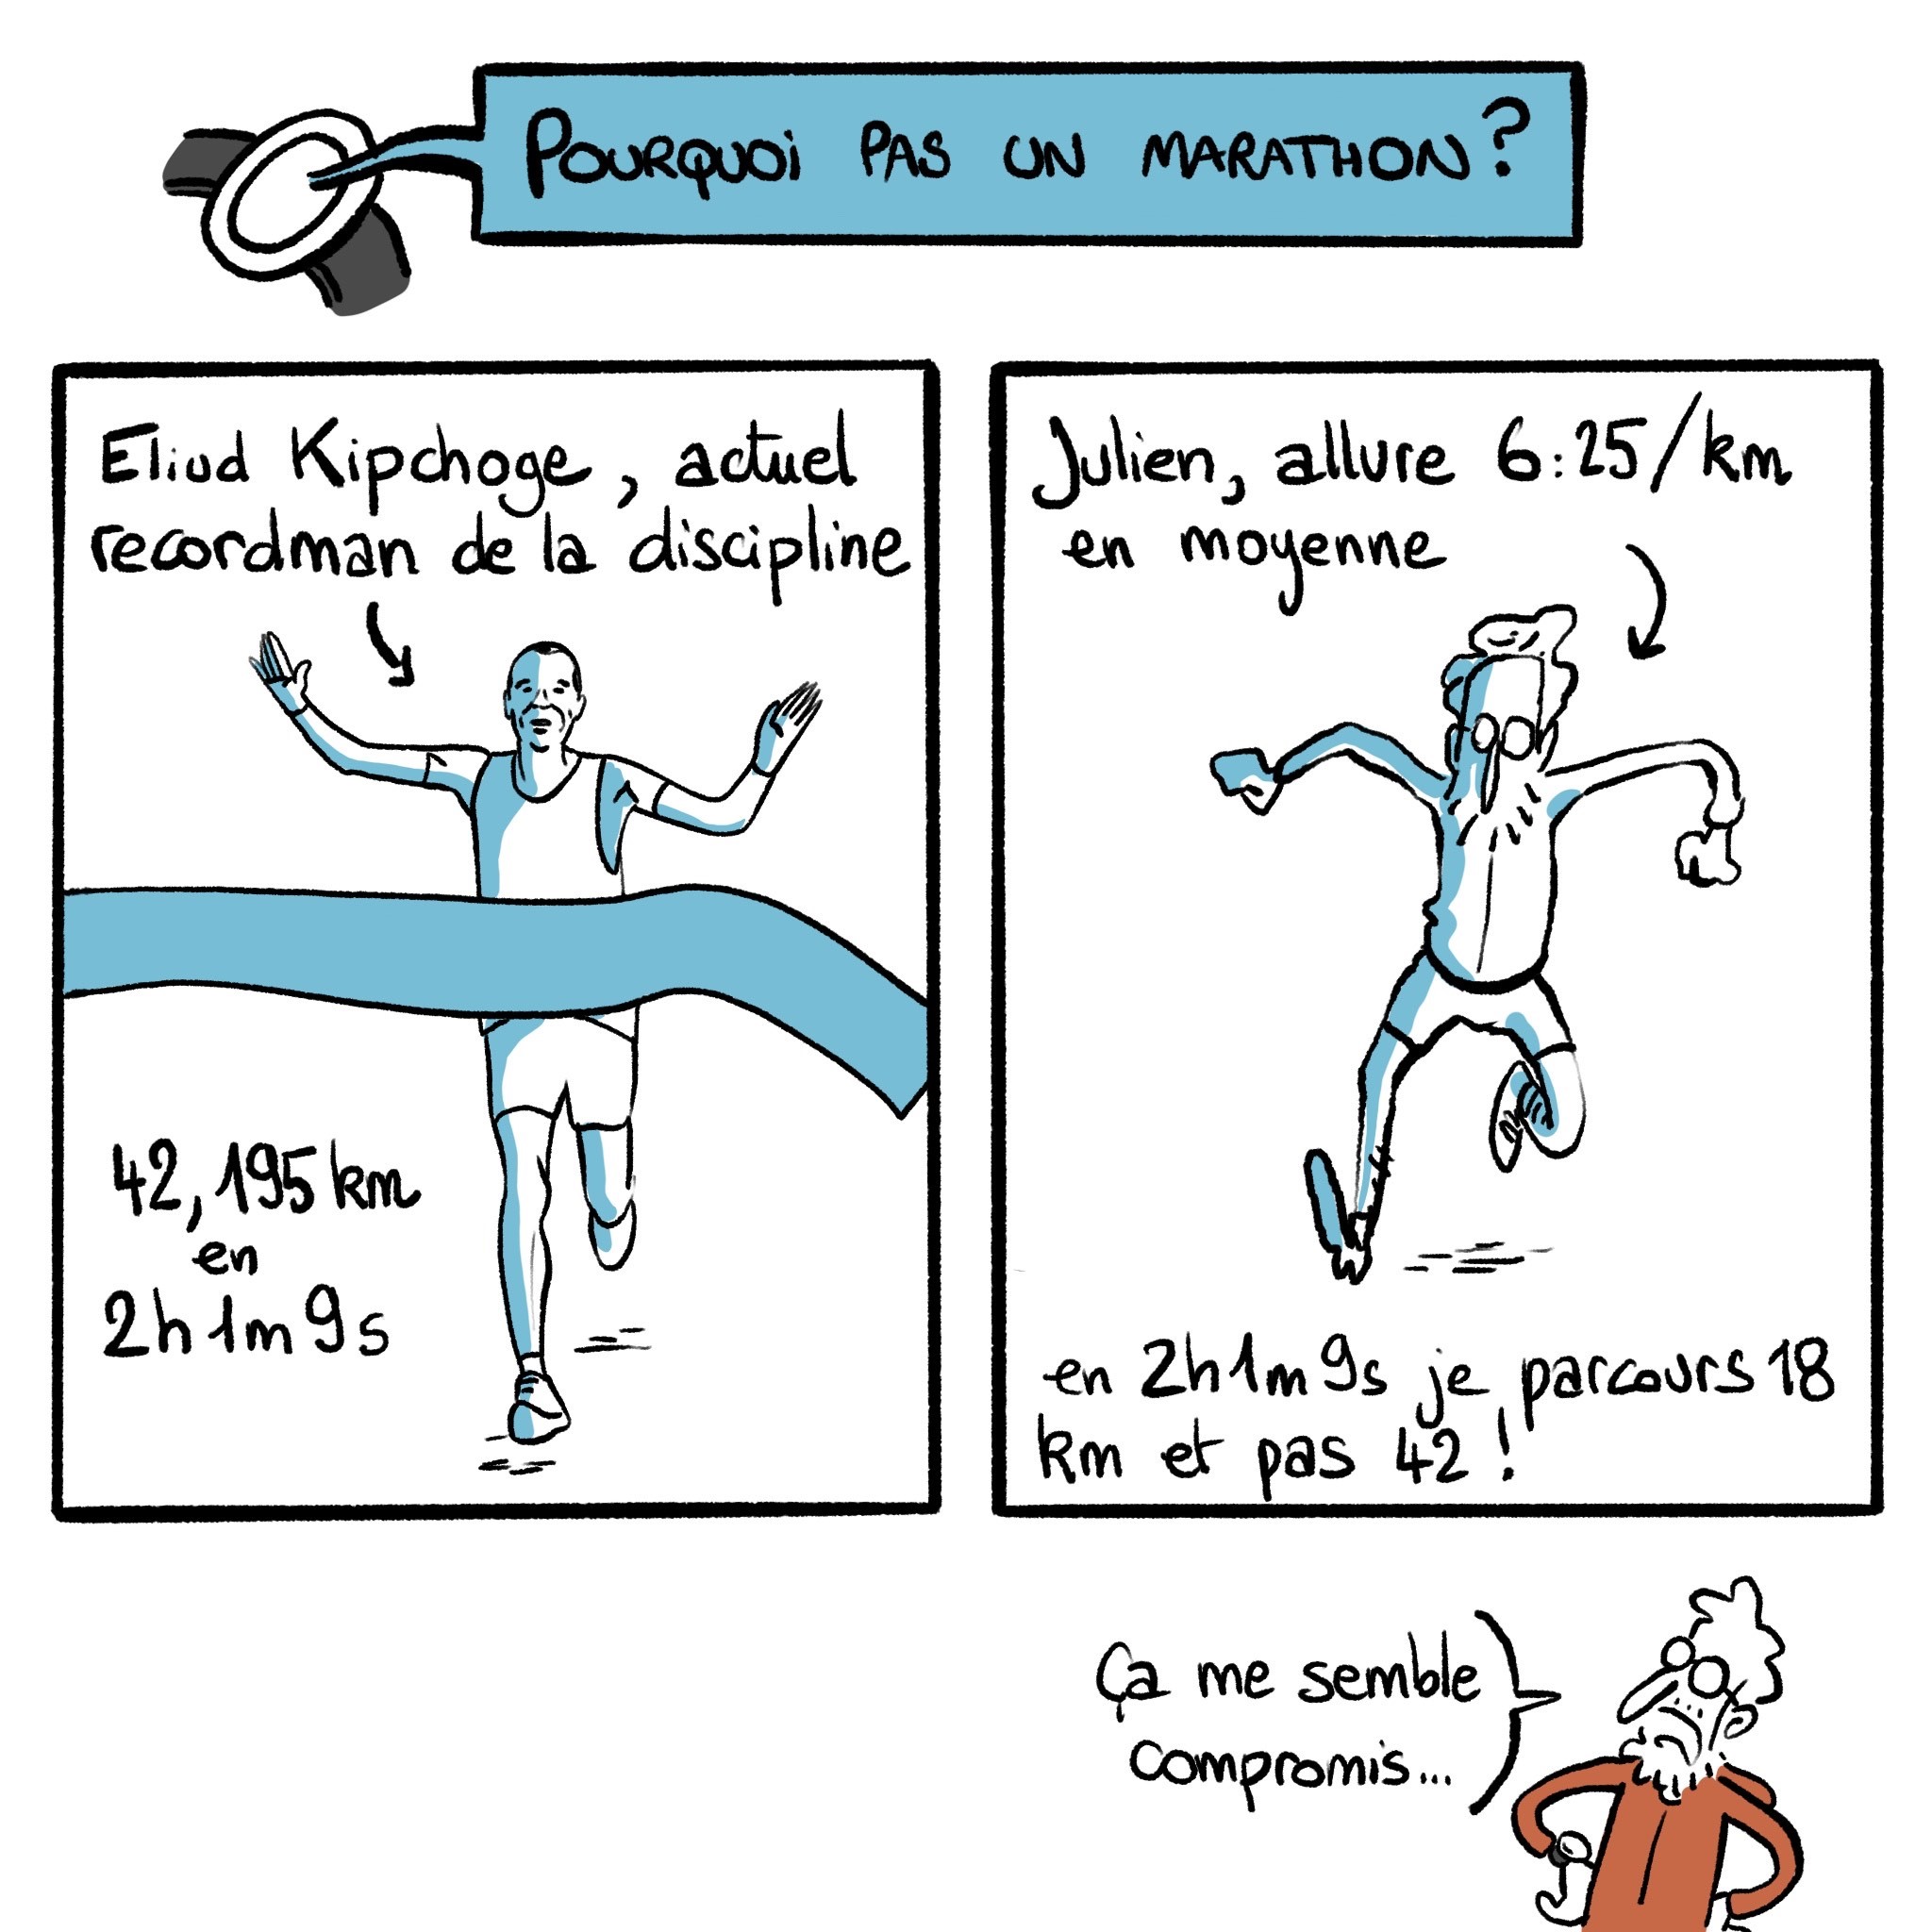 POURQUOI PAS UN MARATHON?
Eliud Kipchoge, actuel
recordman de la discipline
42,195 km
en
2h 1m 9s
Julien, allure 6:25/km
en moyenne
en 2h 1m 9s je parcours 18
km et pas 42 !
Ça me semble
compromis...